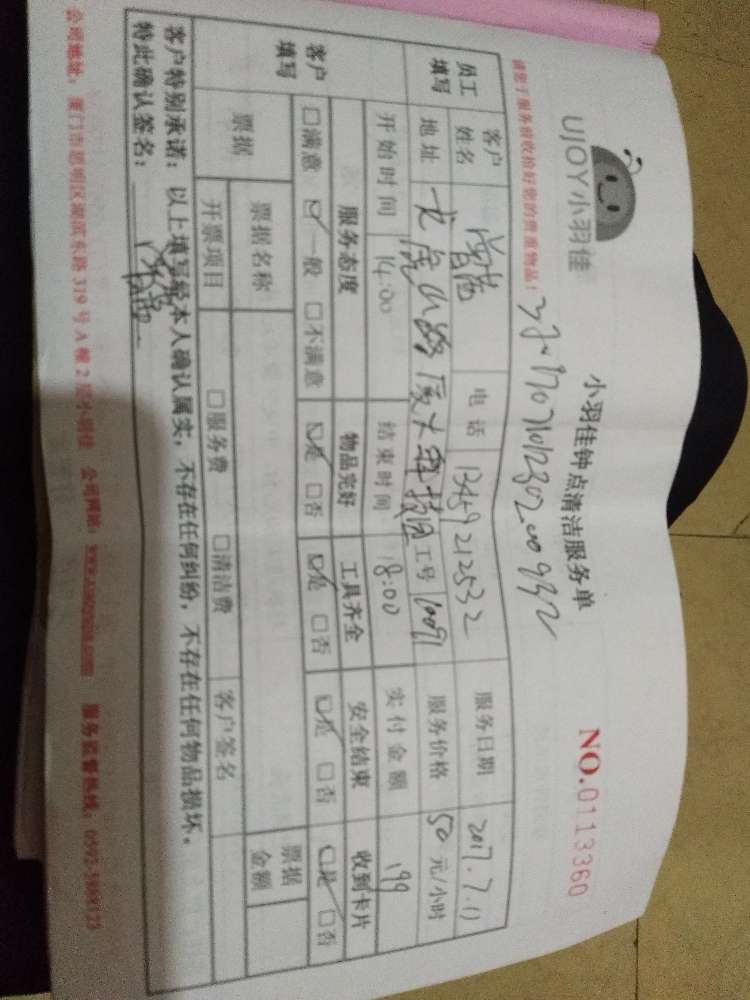 UJOY小羽佳
小羽佳钟点清洁服务单
NO.0113360
请您于服务前收拾好您的贵重物品！
员工填写
客户姓名
电话 13459212532
服务日期 2017.7.11
地址
工号 10091
服务价格 50 元/小时
开始时间 14:00
结束时间 18:00
实付金额 199
客户填写
服务态度 物品完好 工具齐全 安全结束 收到卡片
□满意 ☑一般 □不满意 ☑是 □否 ☑是 □否 ☑是 □否 ☑是 □否
票据 票据名称 票据金额
开票项目 □服务费 □清洁费 客户签名
客户特别承诺：以上填写经本人确认属实，不存在任何纠纷，不存在任何物品损坏。
特此确认签名：
公司地址：厦门市思明区湖滨东路319号A幢2层小羽佳 公司网站： 服务监督热线：